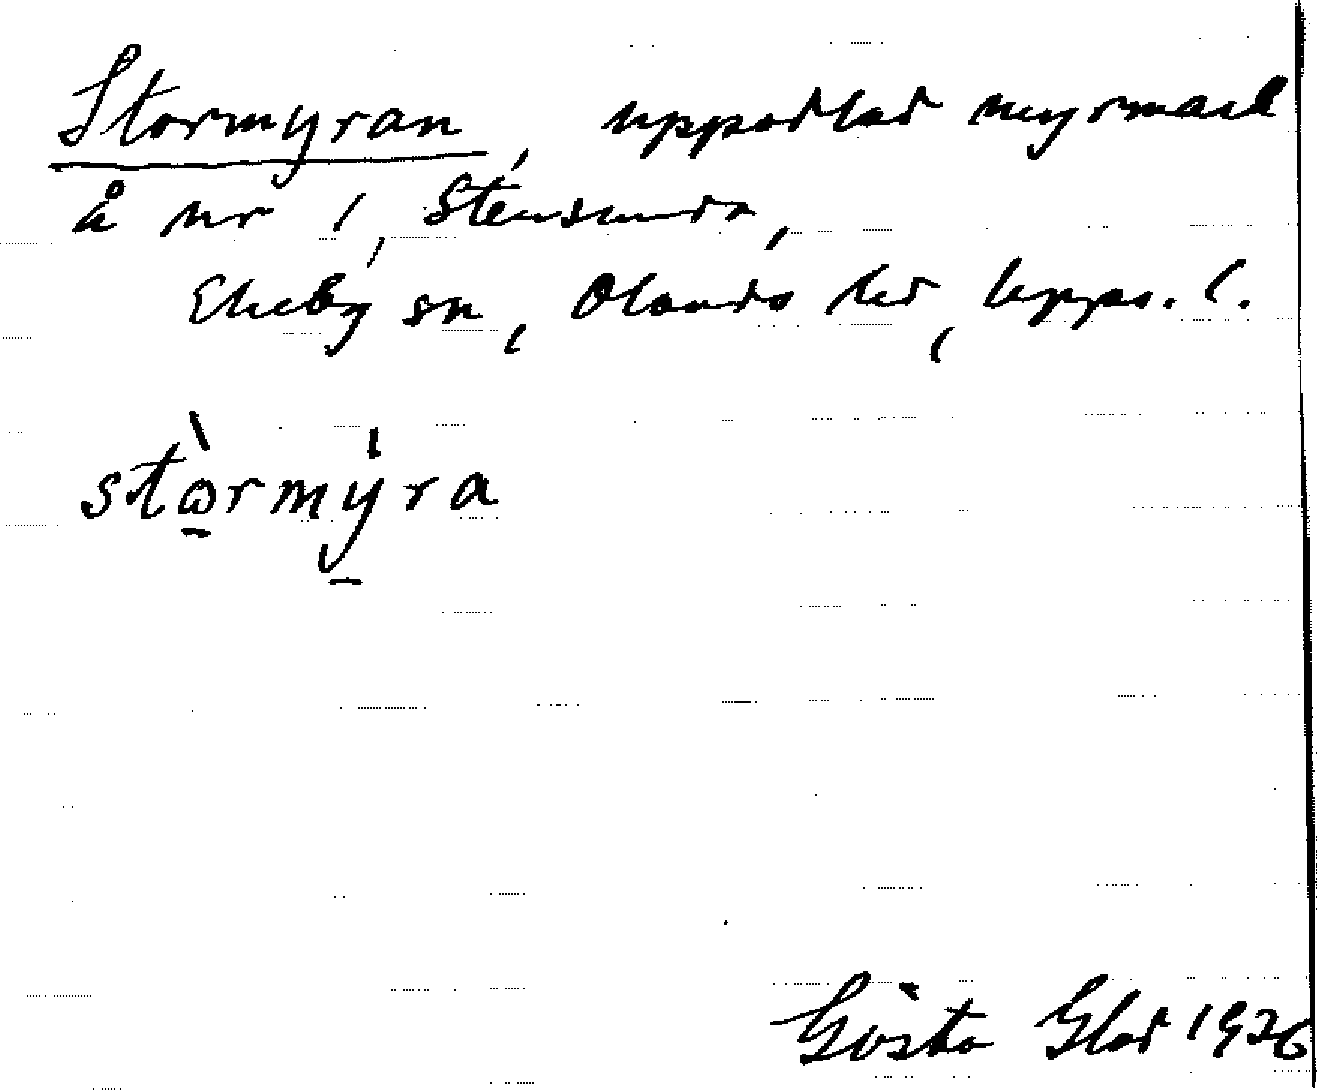 Stormyran, uppodlad myrmark
å nr 1, Stensunda,
Ekeby sn, Olands hd, Upps. l.
stòrmýra
Gösta Glad 1926